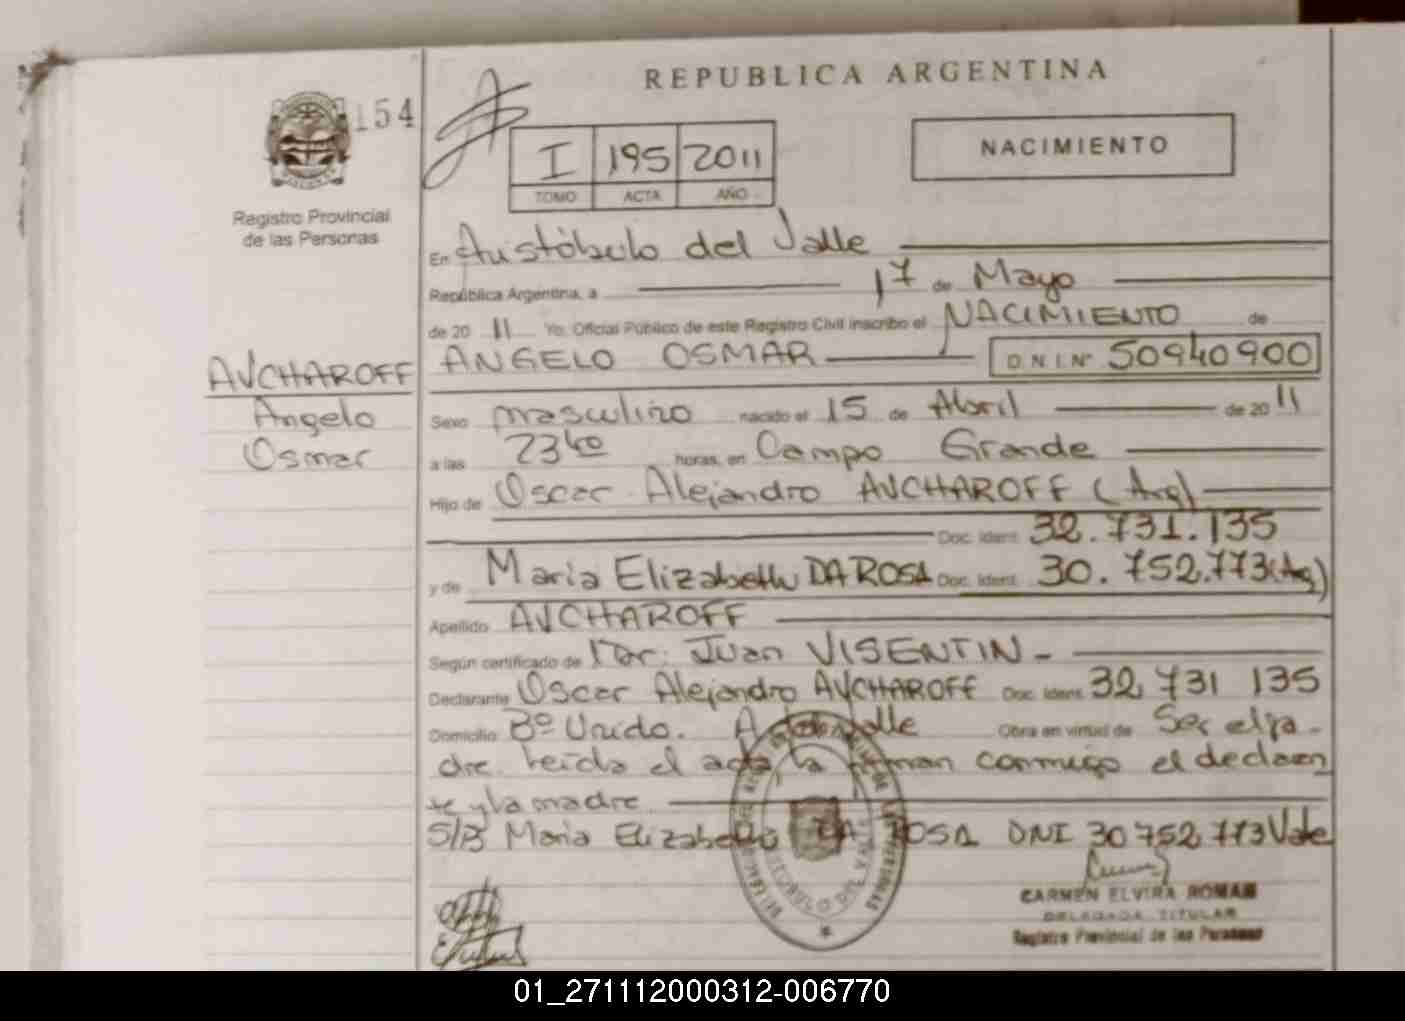 154
REPUBLICA ARGENTINA
I 195 2011
TOMO ACTA AÑO
NACIMIENTO
Registro Provincial
de las Personas
En Aristóbulo del Valle
República Argentina, a 17 de Mayo
de 2011 Yo, Oficial Público de este Registro Civil inscribo el NACIMIENTO de
ANGELO OSMAR D.N.I. Nº 50940900
AVCHAROFF
Angelo
Osmar
Sexo masculino nacido el 15 de Abril de 2011
a las 23 40 horas, en Campo Grande
Hijo de Oscar Alejandro AVCHAROFF (Arg)
Doc. Ident. 32.731.135
y de Maria Elizabeth DA ROSA Doc. Ident. 30.752.773 (Arg)
Apellido AVCHAROFF
Según certificado de Dr. Juan VISENTIN -
Declarante Oscar Alejandro AVCHAROFF Doc. Ident. 32 731 135
Domicilio Bº Unido. A del Valle Obra en virtud de Ser el pa-
dre. Leída el acta, la firman conmigo el declaran
te y la madre
S/B Maria Elizabeth DA ROSA DNI 30 752 773 Vale
CARMEN ELVIRA ROMAN
DELEGADA TITULAR
Registro Provincial de las Personas
01_271112000312-006770